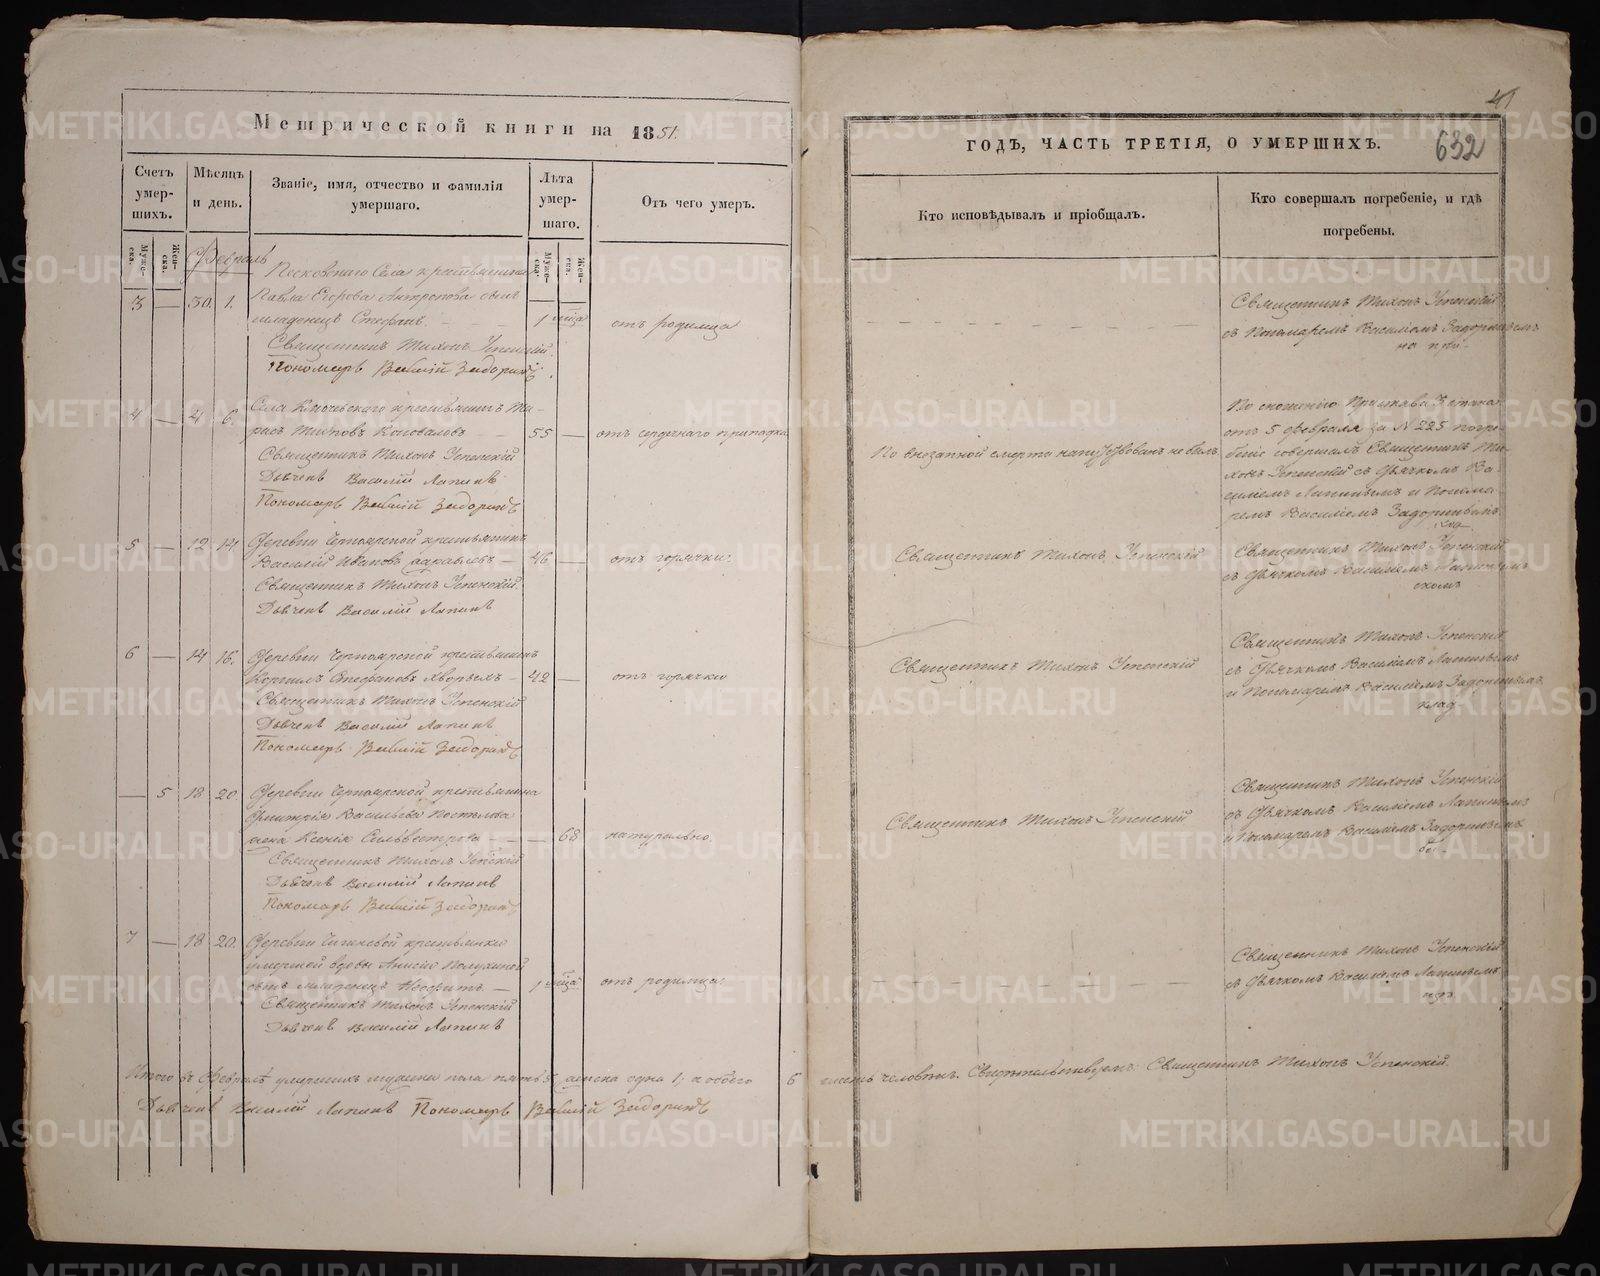 Метрической книги на 1851.
Счетъ умер-шихъ.
Муже-ска.
Жен-ска.
Мѣсяцъ и день.
Званіе, имя, отчество и фамилія умершаго.
Лѣта умер-шаго.
Муже-ска.
Жен-ска.
Отъ чего умеръ.
Февраль
3 — 30. 1.
Павла Егорова Антропова сынъ
младенецъ Стефанъ. 1 мѣца отъ родимца
Священникъ Тихонъ Успенскій.
Пономарь Василій Задоринъ.
4 — 4 6. Села Ключевскаго крестьянинъ
Коноваловъ 55 — отъ сердечнаго припадка
Священникъ Тихонъ Успенскій
Дьячекъ Василій Лапинъ
Пономарь Василій Задоринъ
5 — 12 14 Деревни Черноярской крестьянинъ
Василій Ивановъ — 46 — отъ горячки.
Священникъ Тихонъ Успенскій.
Дьячекъ Василій Лапинъ
6 — 14 16. Деревни Черноярской крестьянинъ
Корнилъ Стефановъ — 42 — отъ горячки
Священникъ Тихонъ Успенскій
Дьячекъ Василій Лапинъ
Пономарь Василій Задоринъ
— 5 18 20. Деревни Черноярской крестьянина
Дмитрія Васильева
жена Ксенія Сильвестрова — — 68 натурально.
Священникъ Тихонъ Успенскій
Дьячекъ Василій Лапинъ
Пономарь Василій Задоринъ
7 — 18 20. Деревни крестьянки
умершей вдовы Анисіи
сынъ младенецъ — 1 мѣца отъ родимца.
Священникъ Тихонъ Успенскій
Дьячекъ Василій Лапинъ
Итого въ Февралѣ умершихъ мужска пола пять 5, женска одна 1; а обоего 6
Дьячекъ Василій Лапинъ Пономарь Василій Задоринъ
41
ГОДЪ, ЧАСТЬ ТРЕТІЯ, О УМЕРШИХЪ.
632
Кто исповѣдывалъ и пріобщалъ.
Кто совершалъ погребеніе, и гдѣ погребены.
Священникъ Тихонъ Успенскій
съ Пономаремъ Василіемъ Задоринымъ
По сношенію Пристава 3 стана
отъ 5 февраля за N 225 погре-
По внезапной смерти напутствованъ не былъ
беніе совершалъ Священникъ Ти-
хонъ Успенскій съ Дьячкомъ Ва-
силіемъ Лапинымъ и Понома-
ремъ Василіемъ Задоринымъ.
Священникъ Тихонъ Успенскій
Священникъ Тихонъ Успенскій
съ Дьячкомъ Василіемъ Лапинымъ
Священникъ Тихонъ Успенскій
Священникъ Тихонъ Успенскій
съ Дьячкомъ Василіемъ Лапинымъ
и Пономаремъ Василіемъ Задоринымъ
Священникъ Тихонъ Успенскій
Священникъ Тихонъ Успенскій
съ Дьячкомъ Василіемъ Лапинымъ
и Пономаремъ Василіемъ Задоринымъ
Священникъ Тихонъ Успенскій
съ Дьячкомъ Василіемъ Лапинымъ
шесть человѣкъ. Свидѣтельствуемъ: Священникъ Тихонъ Успенскій.
METRIKI.GASO-URAL.RU